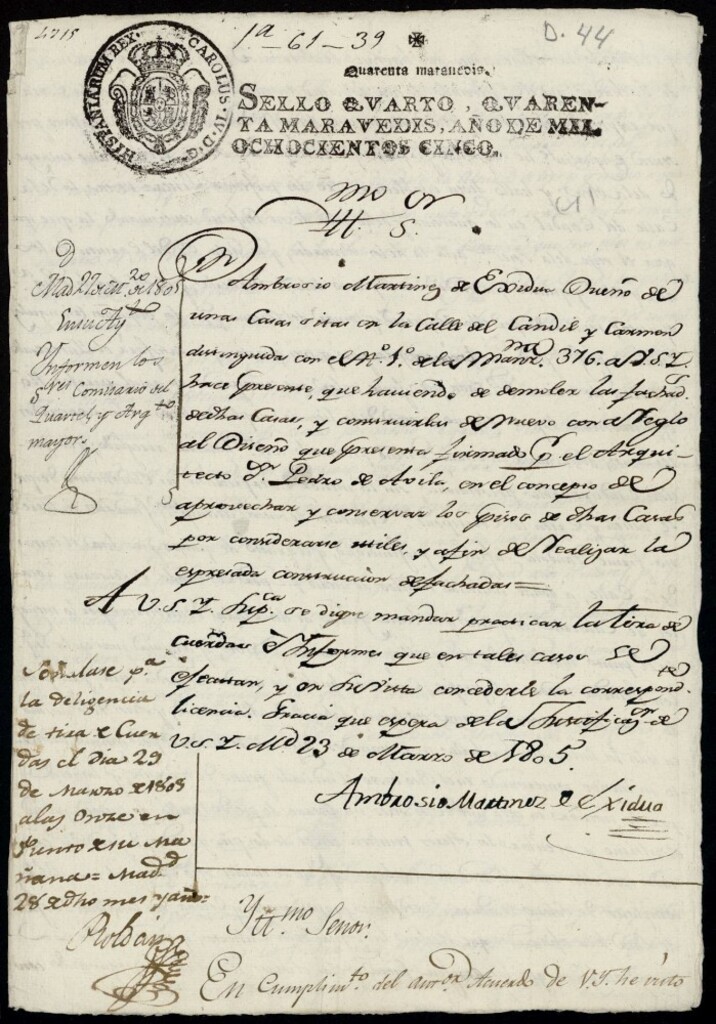 1715
HISPANIARUM REX. CAROLUS. IV. D. G.
1.ª - 61 - 39
D. 44
Quarenta maravedis.
SELLO QVARTO, QVAREN-
TA MARAVEDIS, AÑO DE MIL
OCHOCIENTOS CINCO.
Yll.mo S.or
41
Dn Ambrosio Martinez de Exidua Dueño de
unas Casas sitas en la Calle del Candil y Carmen
distinguida con el N.º 1.º de la Manz.na 376. a V.S.Y.
hace presente, que haviendo de demoler las fachad.s
de dhas Casas, y construirlas de Nuevo con arreglo
al Diseño que presenta firmado p.r el Arqui-
tecto D.n Pedro de Avila, en el concepto de
aprovechar y conservar los pisos de dhas Casas
por considerarse utiles, y a fin de realizar la
espresada construcion de fachadas=
A V.S.Y. Sup.ca se digne mandar practicar la tira de
cuerdas é Informes que en tales casos se
efecutan, y en su vista concederle la correspond.te
licencia. Gracia que espera de la Justificaz.on de
V.S.Y. M.d 23 de Marzo de 1805.
Ambrosio Martinez de Exidua
Mad 27 de 1805
En su Ay.to
Informen los
S.res Comisario del
Quartel y Arq.to
mayor.
Señalase p.a
la deligencia
de tira de Cuer
das el Dia 29
de Marzo de 1805
a las Onze en
Punto de su Ma
ñana= Mad.d
28 de dho mes y año=
Roldan
Yll.mo Señor.
En Cumplim.to del anter.or Acuerdo de V.Y. he visto